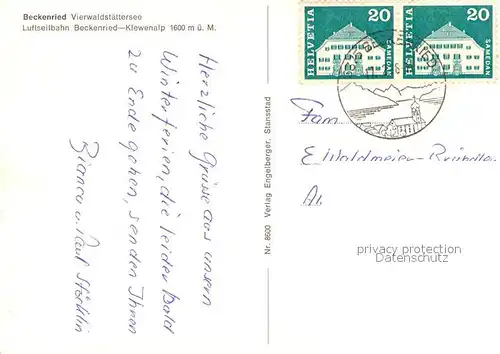 Beckenried Vierwaldstättersee
Luftseilbahn Beckenried—Klewenalp 1600 m ü. M.
Herzliche Grüsse aus unsern
Winterferien, die leider bald
zu Ende gehen, senden Ihnen
Bianca u. Paul Stöcklin
Nr. 8600 Verlag Engelberger, Stansstad
HELVETIA 20
SAMEDAN
HELVETIA 20
SAMEDAN
Fam.
E. Waldmeier-
privacy protection
DELCAMPE